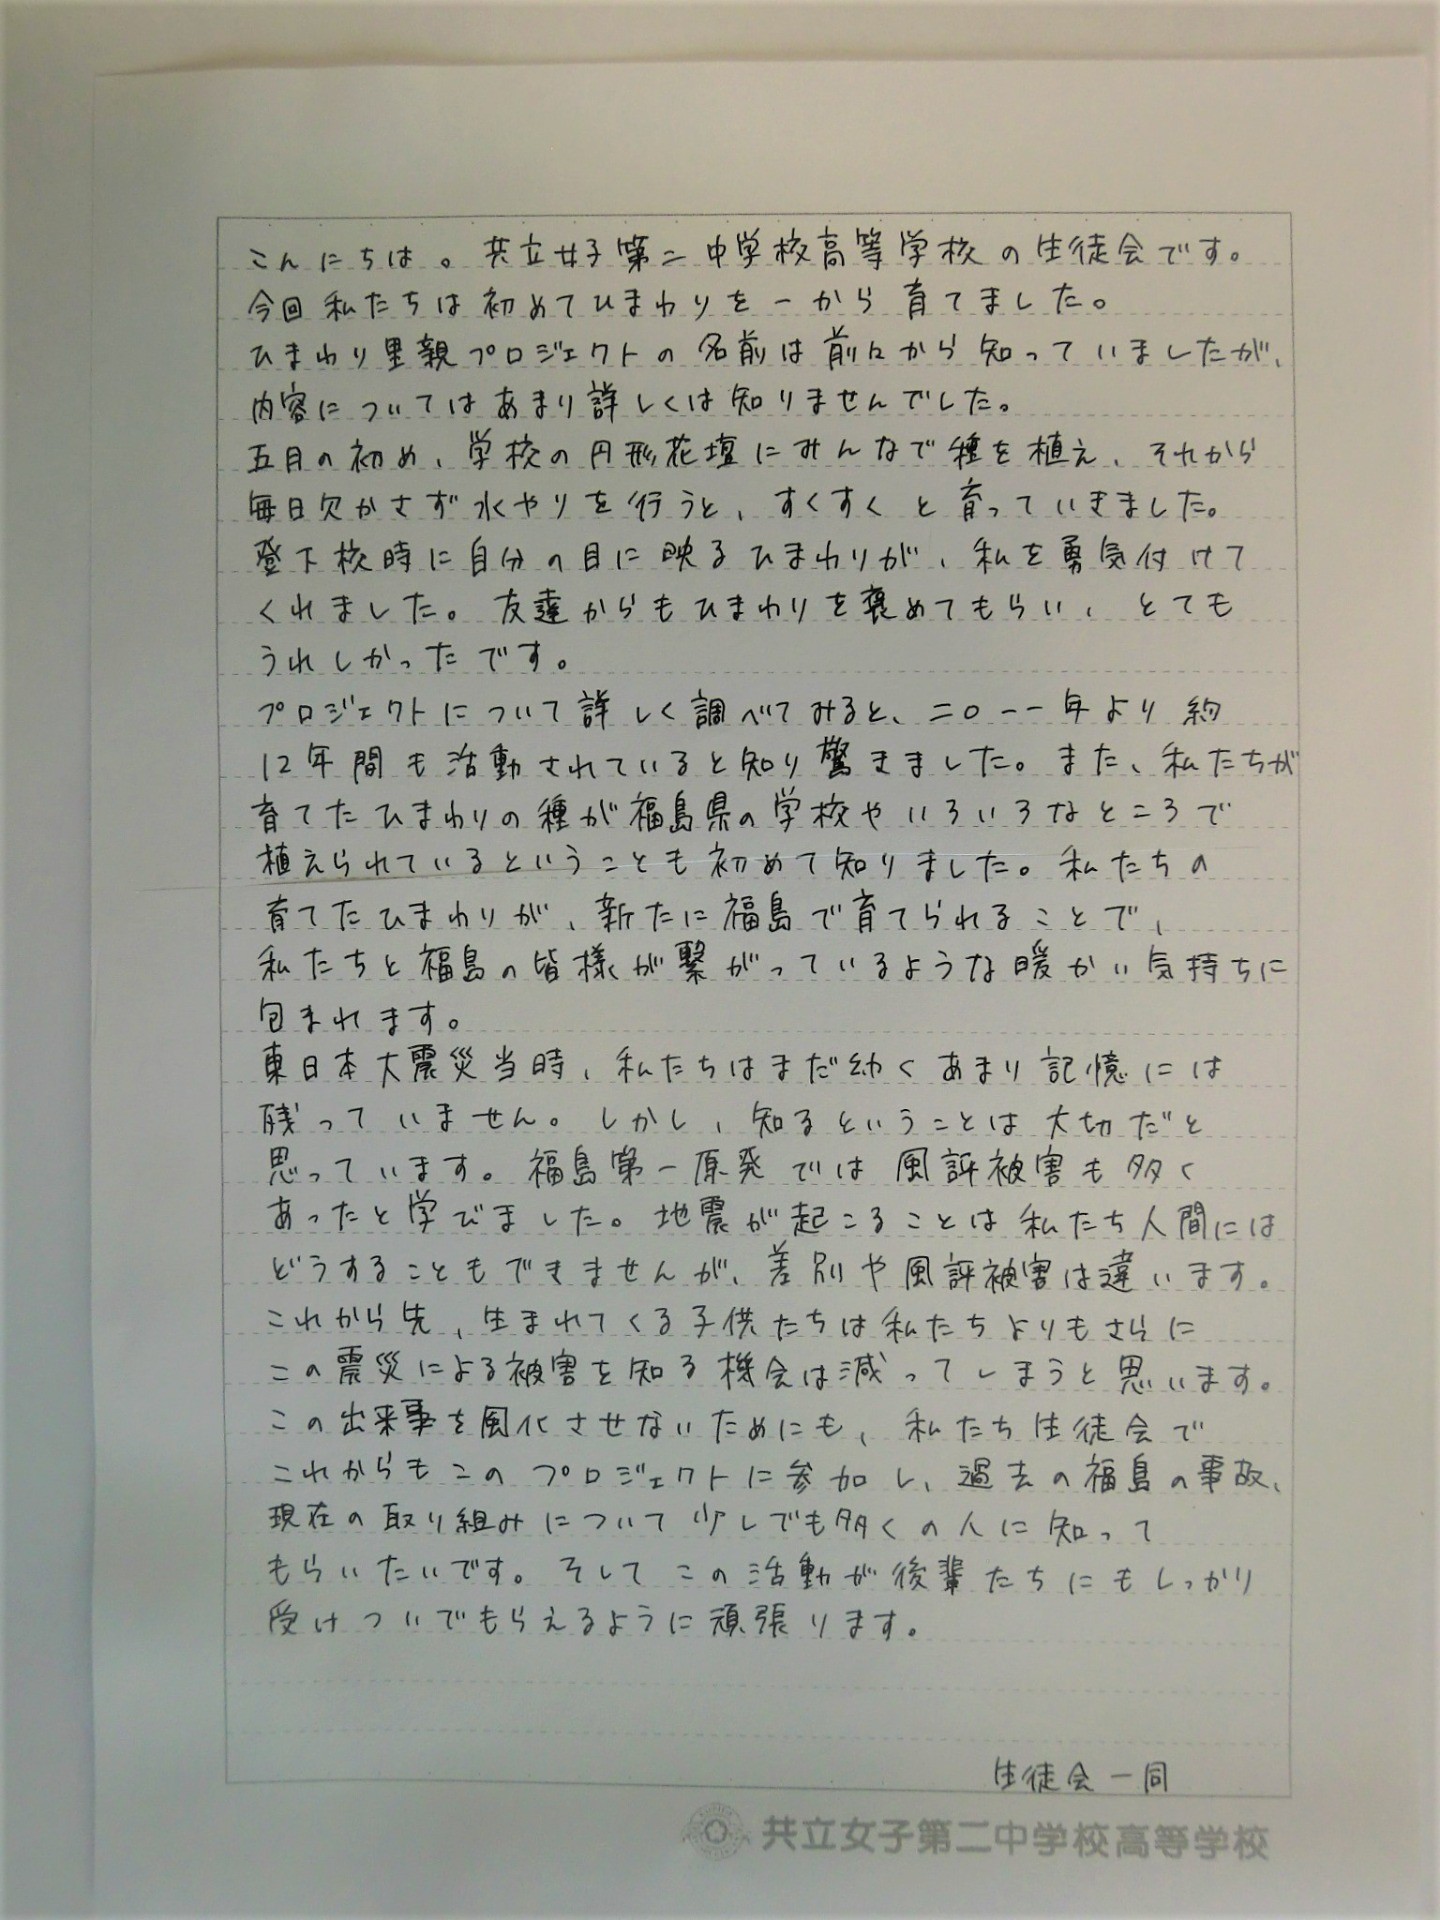 こんにちは。共立女子第二中学校高等学校の生徒会です。
今回私たちは初めてひまわりを一から育てました。
ひまわり里親プロジェクトの名前は前々から知っていましたが、
内容についてはあまり詳しくは知りませんでした。
五月の初め、学校の円形花壇にみんなで種を植え、それから
毎日欠かさず水やりを行うと、すくすくと育っていきました。
登下校時に自分の目に映るひまわりが、私を勇気付けて
くれました。友達からもひまわりを褒めてもらい、とても
うれしかったです。
プロジェクトについて詳しく調べてみると、二〇一一年より約
12年間も活動されていると知り驚きました。また、私たちが
育てたひまわりの種が福島県の学校やいろいろなところで
植えられているということも初めて知りました。私たちの
育てたひまわりが、新たに福島で育てられることで、
私たちと福島の皆様が繋がっているような暖かい気持ちに
包まれます。
東日本大震災当時、私たちはまだ幼くあまり記憶には
残っていません。しかし、知るということは大切だと
思っています。福島第一原発では風評被害も多く
あったと学びました。地震が起こることは私たち人間には
どうすることもできませんが、差別や風評被害は違います。
これから先、生まれてくる子供たちは私たちよりもさらに
この震災による被害を知る機会は減ってしまうと思います。
この出来事を風化させないためにも、私たち生徒会で
これからもこのプロジェクトに参加し、過去の福島の事故、
現在の取り組みについて少しでも多くの人に知って
もらいたいです。そしてこの活動が後輩たちにもしっかり
受けついでもらえるように頑張ります。
生徒会一同
共立女子第二中学校高等学校